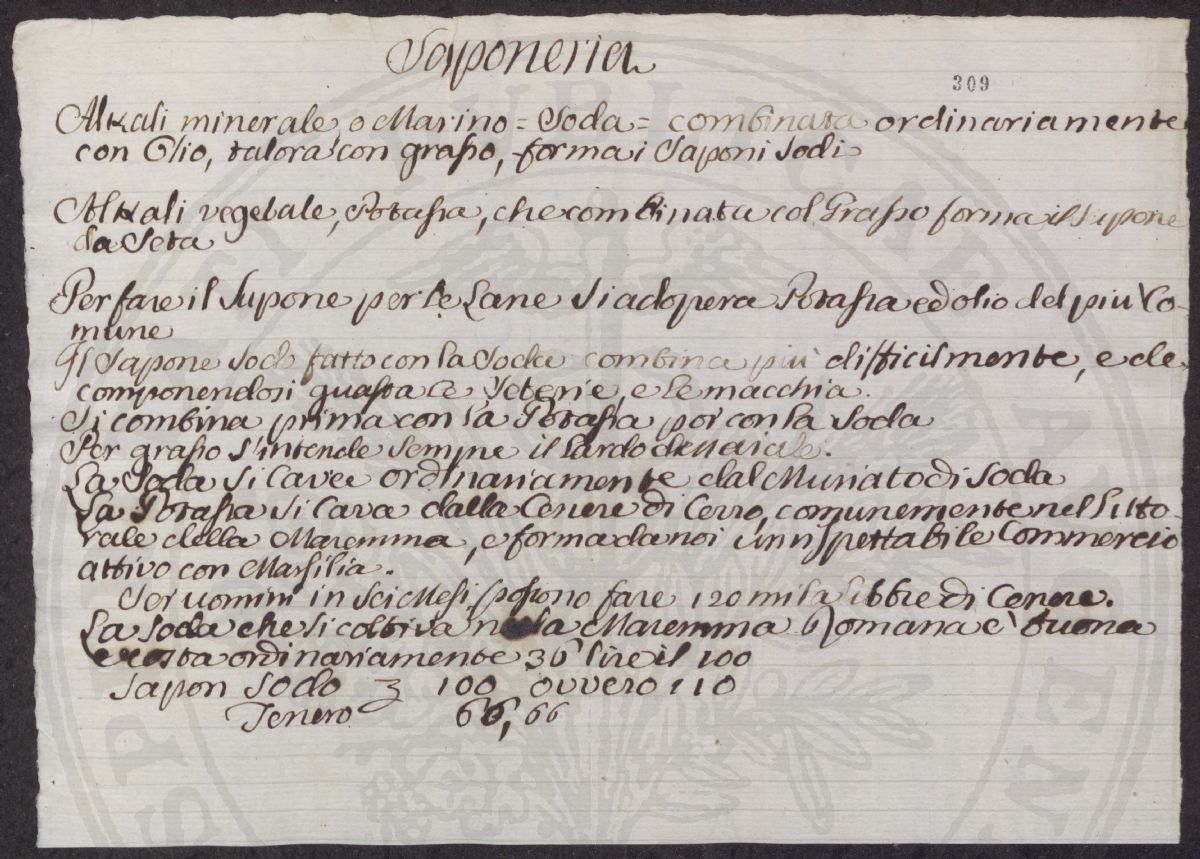 Saponeria
309
Alkali minerale, o Marino = Soda = combinata ordinariamente
con Olio, talora con grasso, forma i Saponi sodi
Alkali vegetale, Potassa, che combinata col Grasso forma il Sapone
da Seta
Per fare il Sapone per le Lane si adopera Potassa ed olio del più Co-
mune
Il Sapone sodo fatto con la Soda combina più difficilmente, e de-
componendosi guasta le Seterie, e le macchia.
Si combina prima con la Potassa poi con la Soda
Per grasso s'intende sempre il Lardo di Maiale.
La Soda si cava ordinariamente dal Muriato di Soda
La Potassa si cava dalla Cenere di Cerro, comunemente nel Litto-
rale della Maremma, e forma da noi un rispettabile Commercio
attivo con Marsilia.
Sei uomini in sei Mesi possono fare 120 mila Libbre di Cenere.
La Soda che si coltiva nella Maremma Romana è buona
e costa ordinariamente 36 lire il 100
Sapon Sodo 100 ovvero 110
Tenero 66,66